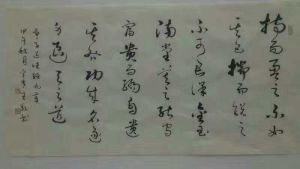 持而盈之不如
其已揣而銳之
不可長保金玉
滿堂莫之能守
富貴而驕自遺
其咎功成名遂
身退天之道
老子道德經九章
甲午秋月